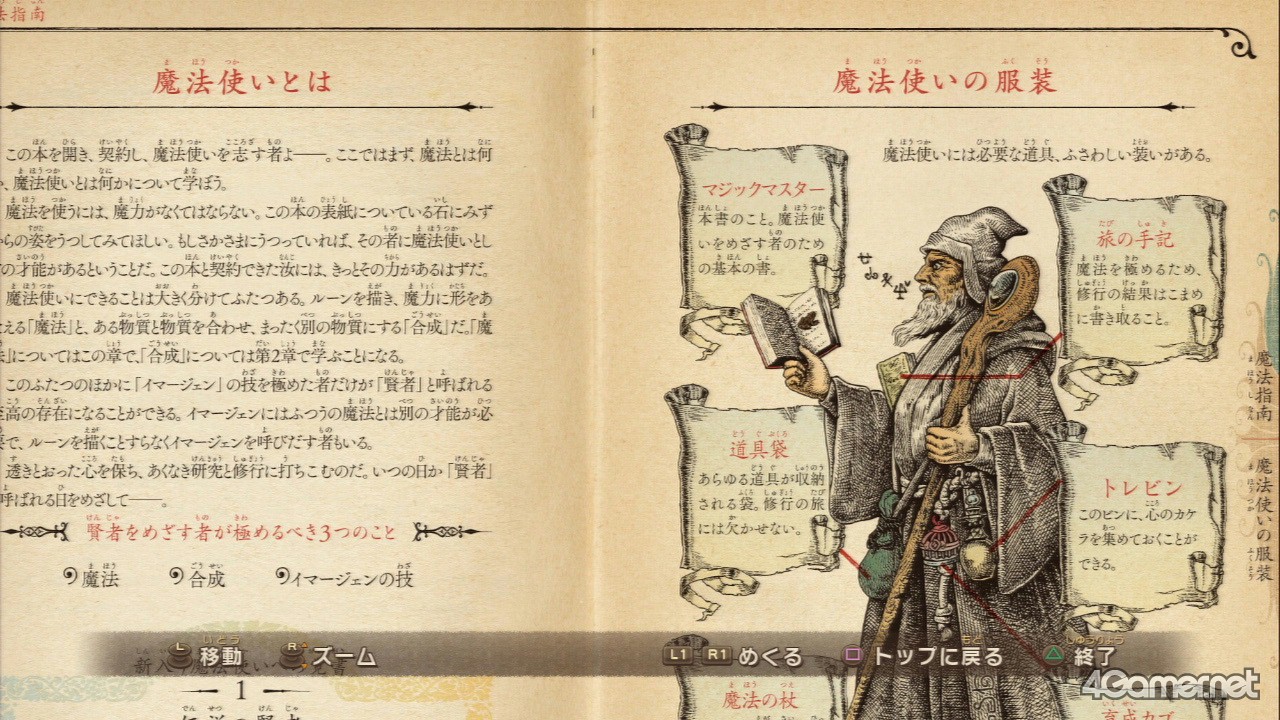 法指南
魔法使いとは
この本を開き、契約し、魔法使いを志す者よ――。ここではまず、魔法とは何
、魔法使いとは何かについて学ぼう。
魔法を使うには、魔力がなくてはならない。この本の表紙についている石にみず
らの姿をうつしてみてほしい。もしさかさまにうつっていれば、その者に魔法使いとし
の才能があるということだ。この本と契約できた汝には、きっとその力があるはずだ。
魔法使いにできることは大きく分けてふたつある。ルーンを描き、魔力に形をあ
える「魔法」と、ある物質と物質を合わせ、まったく別の物質にする「合成」だ。「魔
」についてはこの章で、「合成」については第2章で学ぶことになる。
このふたつのほかに「イマージェン」の技を極めた者だけが「賢者」と呼ばれる
至高の存在になることができる。イマージェンにはふつうの魔法とは別の才能が必
で、ルーンを描くことすらなくイマージェンを呼びだす者もいる。
透きとおった心を保ち、あくなき研究と修行に打ちこむのだ。いつの日か「賢者」
呼ばれる日をめざして――。
賢者をめざす者が極めるべき3つのこと
魔法 合成 イマージェンの技
1
魔法使いの服装
魔法使いには必要な道具、ふさわしい装いがある。
マジックマスター
本書のこと。魔法使
いをめざす者のため
の基本の書。
旅の手記
魔法を極めるため、
修行の結果はこまめ
に書き取ること。
道具袋
あらゆる道具が収納
される袋。修行の旅
には欠かせない。
トレビン
このビンに、心のカケ
ラを集めておくことが
できる。
魔法の杖
魔法指南
魔法使いの服装
L 移動 R ズーム L1 R1 めくる □ トップに戻る △ 終了
4Gamer.net